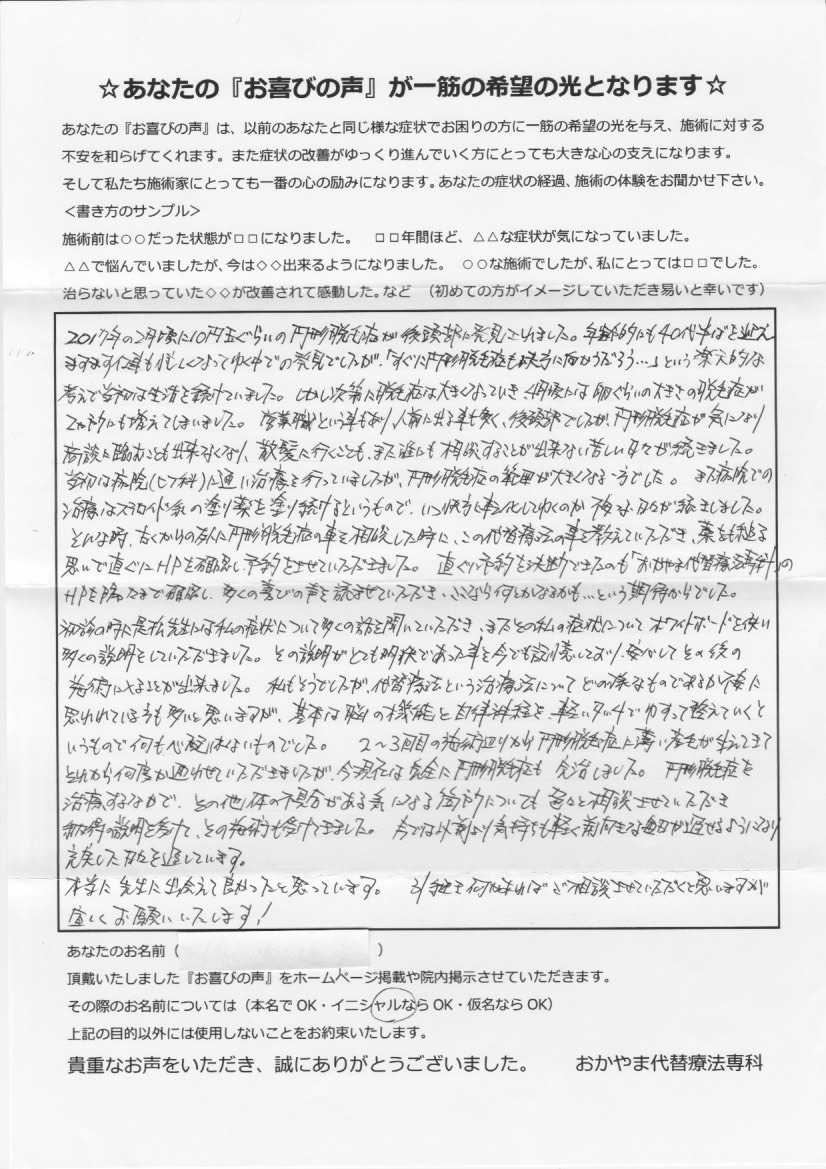 ☆あなたの『お喜びの声』が一筋の希望の光となります☆
あなたの『お喜びの声』は、以前のあなたと同じ様な症状でお困りの方に一筋の希望の光を与え、施術に対する
不安を和らげてくれます。また症状の改善がゆっくり進んでいく方にとっても大きな心の支えになります。
そして私たち施術家にとっても一番の心の励みになります。あなたの症状の経過、施術の体験をお聞かせ下さい。
<書き方のサンプル>
施術前は○○だった状態が□□になりました。 □□年間ほど、△△な症状が気になっていました。
△△で悩んでいましたが、今は◇◇出来るようになりました。 ○○な施術でしたが、私にとっては□□でした。
治らないと思っていた◇◇が改善されて感動した。など （初めての方がイメージしていただき易いと幸いです）
2017年の2月頃に10円玉ぐらいの円形脱毛症が後頭部に発見されました。年齢的にも40代半ばを迎え
ますます仕事も忙しくなってゆく中での発見でしたが、「すぐに円形脱毛症も快方に向かうだろう…」という楽天的な
考えで当初は生活を続けていました。しかし次第に脱毛症は大きくなっていき、4月頃には卵ぐらいの大きさの脱毛症が
2ヵ所にも増えてしまいました。営業職という事もあり、人前に出る事も多く、後頭部でしたが、円形脱毛症が気になり
商談に臨むことも出来なくなり、散髪に行くことも、また誰にも相談することが出来ない苦しい日々が続きました。
当初は病院(ヒフ科)に通い治療を行っていましたが、円形脱毛症の範囲が大きくなる一方でした。また病院での
治療はステロイド系の塗り薬を塗り続けるというもので、いつ快方に変化してゆくのか不安な日々が続きました。
そんな時、古くからの友人に円形脱毛症の事を相談した時に、この代替療法の事を教えていただき、藁をも縋る
思いで直ぐにHPを確認し予約をさせていただきました。直ぐに予約を決断できたのも「おかやま代替療法専科」の
HPを隅々まで確認し、多くの喜びの声を読ませていただき、ここなら何とかなるかも…という期待からでした。
初診の時に是松先生には私の症状について多くの話を聞いていただき、またその私の症状についてホワイトボードを使い
多くの説明をしていただきました。その説明がとても明快であった事を今でも記憶しており、安心してその後の
施術に入ることが出来ました。私もそうでしたが、代替療法という治療法についてどの様なものであるか不安に
思われている方も多いと思いますが、基本は脳の機能と自律神経を軽いタッチでゆすって整えていくと
いうもので何も心配はないものでした。 2～3回目の施術辺りから円形脱毛症に薄い産毛が生えてきて
それから何度か通わせていただきましたが、今現在は完全に円形脱毛症も完治しました。円形脱毛症を
治療するなかで、その他、体の不具合がある気になる箇所についても色々と相談させていただき
納得の説明を受けて、その施術も受けてきました。今では以前より気持ちも軽く前向きな毎日が過せるようになり
充実した日々を過しています。
本当に先生に出会えて良かったと思っています。引き続き何かあればご相談させていただくと思いますが
宜しくお願いいたします！
あなたのお名前（ ）
頂戴いたしました『お喜びの声』をホームページ掲載や院内掲示させていただきます。
その際のお名前については（本名でOK・イニシャルならOK・仮名ならOK）
上記の目的以外には使用しないことをお約束いたします。
貴重なお声をいただき、誠にありがとうございました。 おかやま代替療法専科